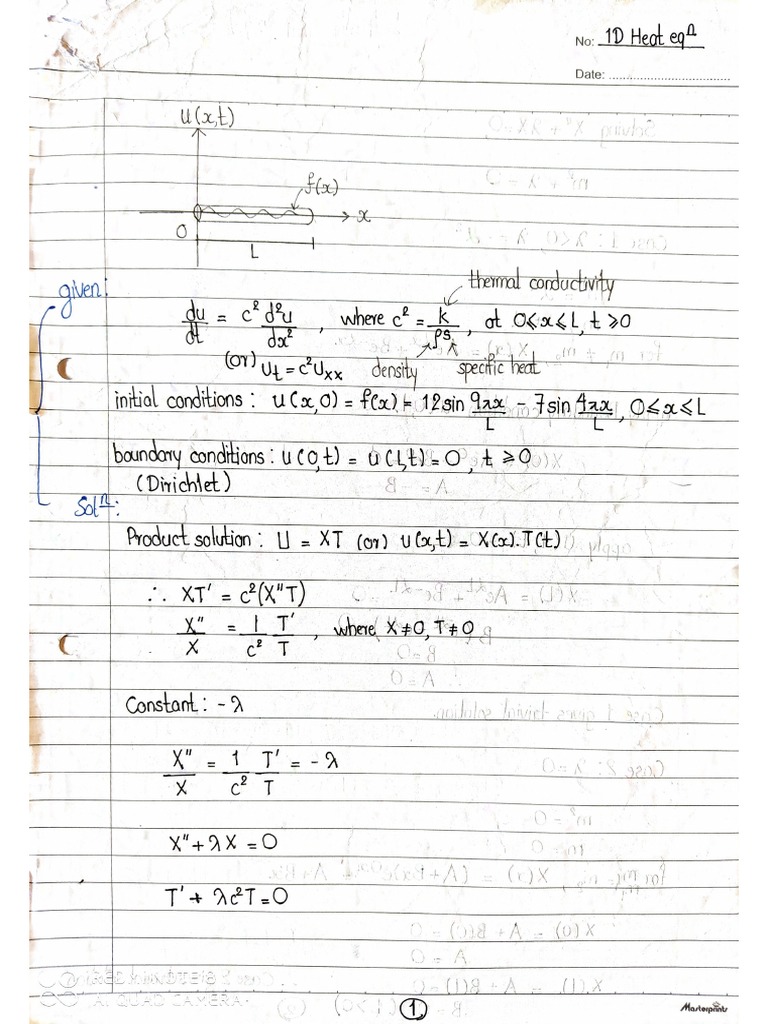 No: 1D Heat eqⁿ
Date:
u(x,t)
f(x)
x
0
L
given:
thermal conductivity
du/dt = c² d²u/dx² , where c² = k/ρs , at 0⩽x⩽L, t⩾0
(or) Ut = c²Uxx density specific heat
initial conditions : u(x,0) = f(x) = 12sin 9πx/L - 7sin 4πx/L , 0⩽x⩽L
boundary conditions : u(0,t) = u(L,t) = 0 , t ⩾ 0
(Dirichlet)
Solⁿ:
Product solution : U = XT (or) u(x,t) = X(x).T(t)
∴ XT' = c²(X"T)
X"/X = 1/c² T'/T , where X≠0, T≠0
Constant : -λ
X"/X = 1/c² T'/T = -λ
X" + λX = 0
T' + λc²T = 0
AI QUAD CAMERA
1
Masterprints